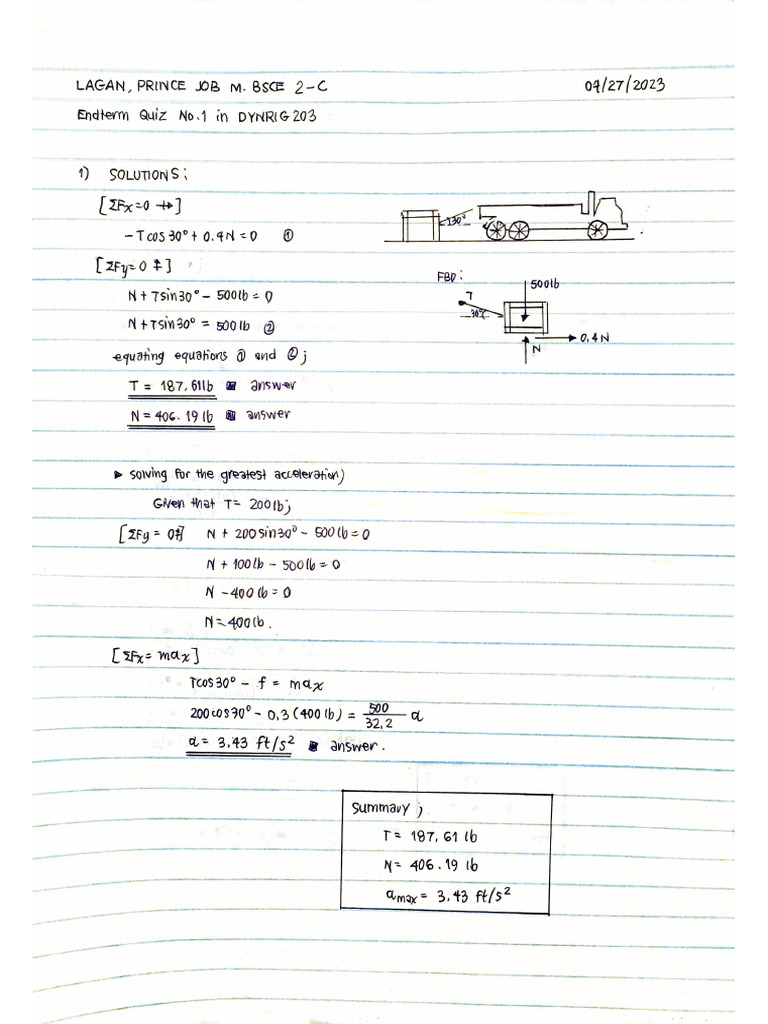 LAGAN, PRINCE JOB M. BSCE 2-C 04/27/2023
Endterm Quiz No.1 in DYNRIG203
1) SOLUTIONS;
[ΣFx=0 →+]
-Tcos30° + 0.4N = 0 ①
30°
[ΣFy=0 ↑+]
FBD:
500lb
T
30°
0.4N
N
N + Tsin30° - 500lb = 0
N + Tsin30° = 500lb ②
equating equations ① and ②;
T = 187.61lb answer
N = 406.19lb answer
▸ solving for the greatest acceleration;
Given that T = 200lb;
[ΣFy = 0 ↑+] N + 200sin30° - 500lb = 0
N + 100lb - 500lb = 0
N - 400lb = 0
N = 400lb.
[ΣFx = max]
Tcos30° - f = max
200cos30° - 0.3(400lb) = 500/32.2 a
a = 3.43 ft/s² answer.
Summary;
T = 187.61 lb
N = 406.19 lb
amax = 3.43 ft/s²